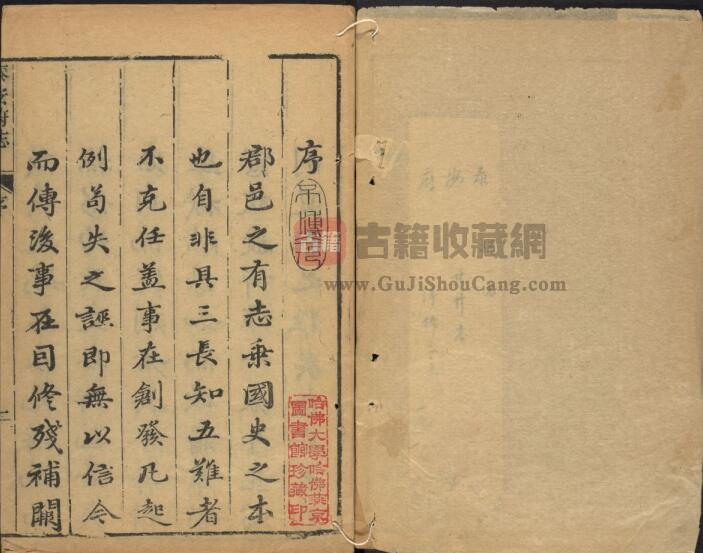 序
郡邑之有志乘國史之本
也自非具三長知五難者
不克任盖事在創發凡起
例苟失之誣即無以信今
而傳後事在因修殘補闕
泰安府志
序
哈佛大學哈佛燕京
圖書館珍藏印
古籍收藏網
www.GuJiShouCang.com